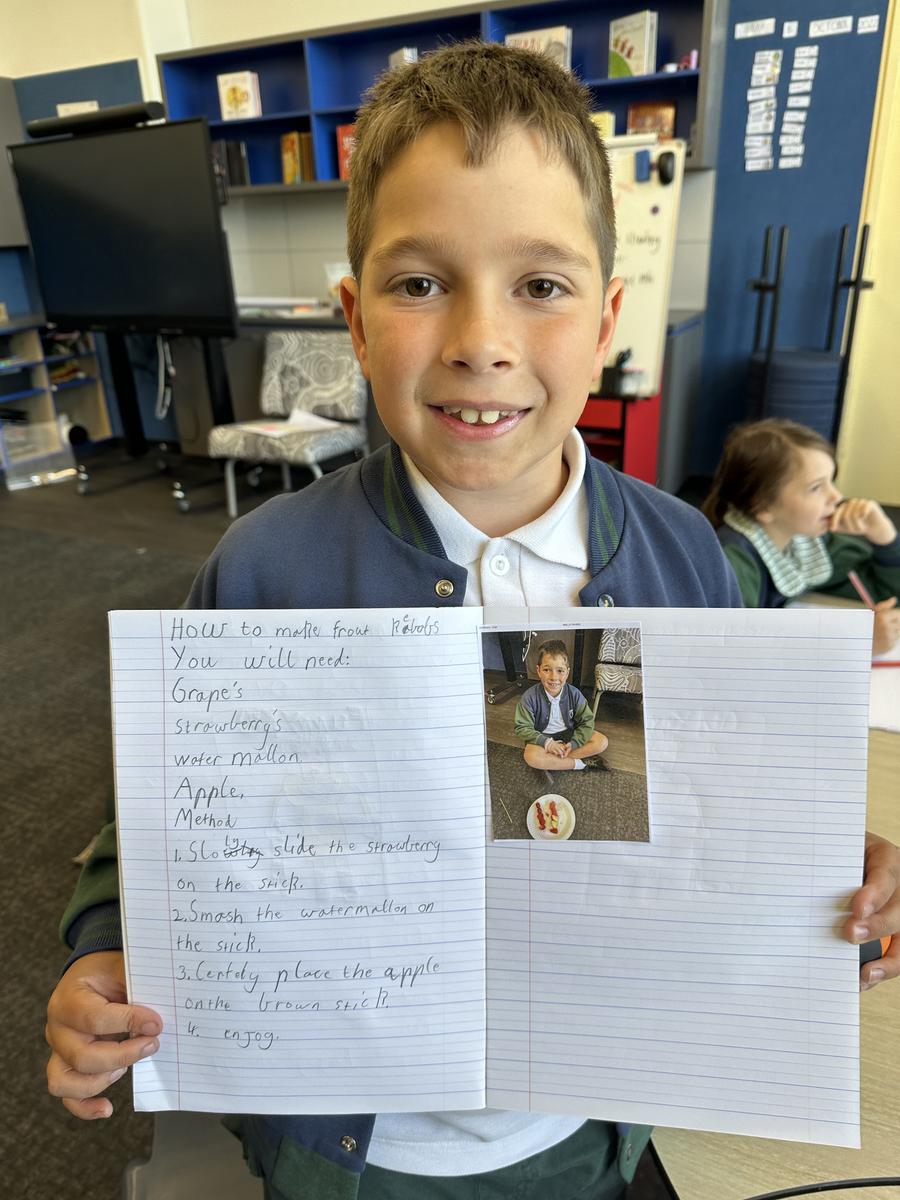 OCTOBER
How to make frout kebabs
You will need:
Grape's
strawberry's
water mallon
Apple,
Method
1. Slowly slide the strawberry
on the stick.
2. Smash the watermallon on
the stick.
3. Certefly place the apple
on the brown stick.
4. enjog.